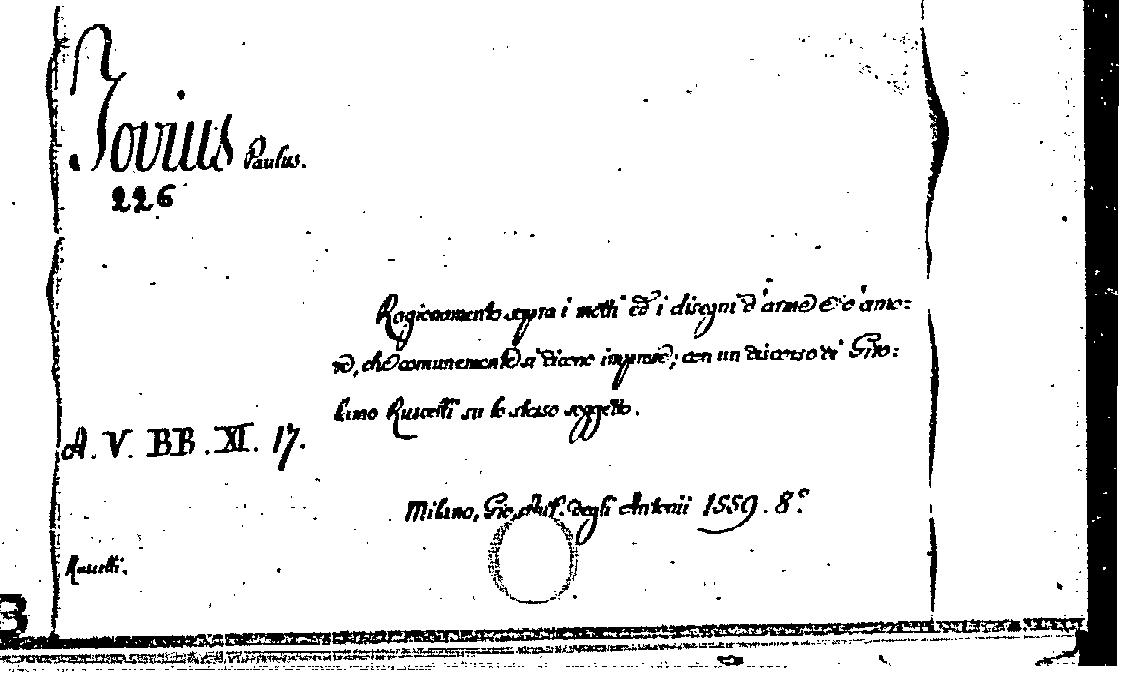 Jovius Paulus.
226
Ragionamento sopra i motti ed i disegni d'arme e d'amo=
re, che comunemente si dicono imprese; con un discorso di Giro=
lamo Ruscelli su lo stesso soggetto.
A. V. BB. XI. 17.
Milano, Gio. Ant. degli Antonii 1559. 8.º
Ruscelli.
B